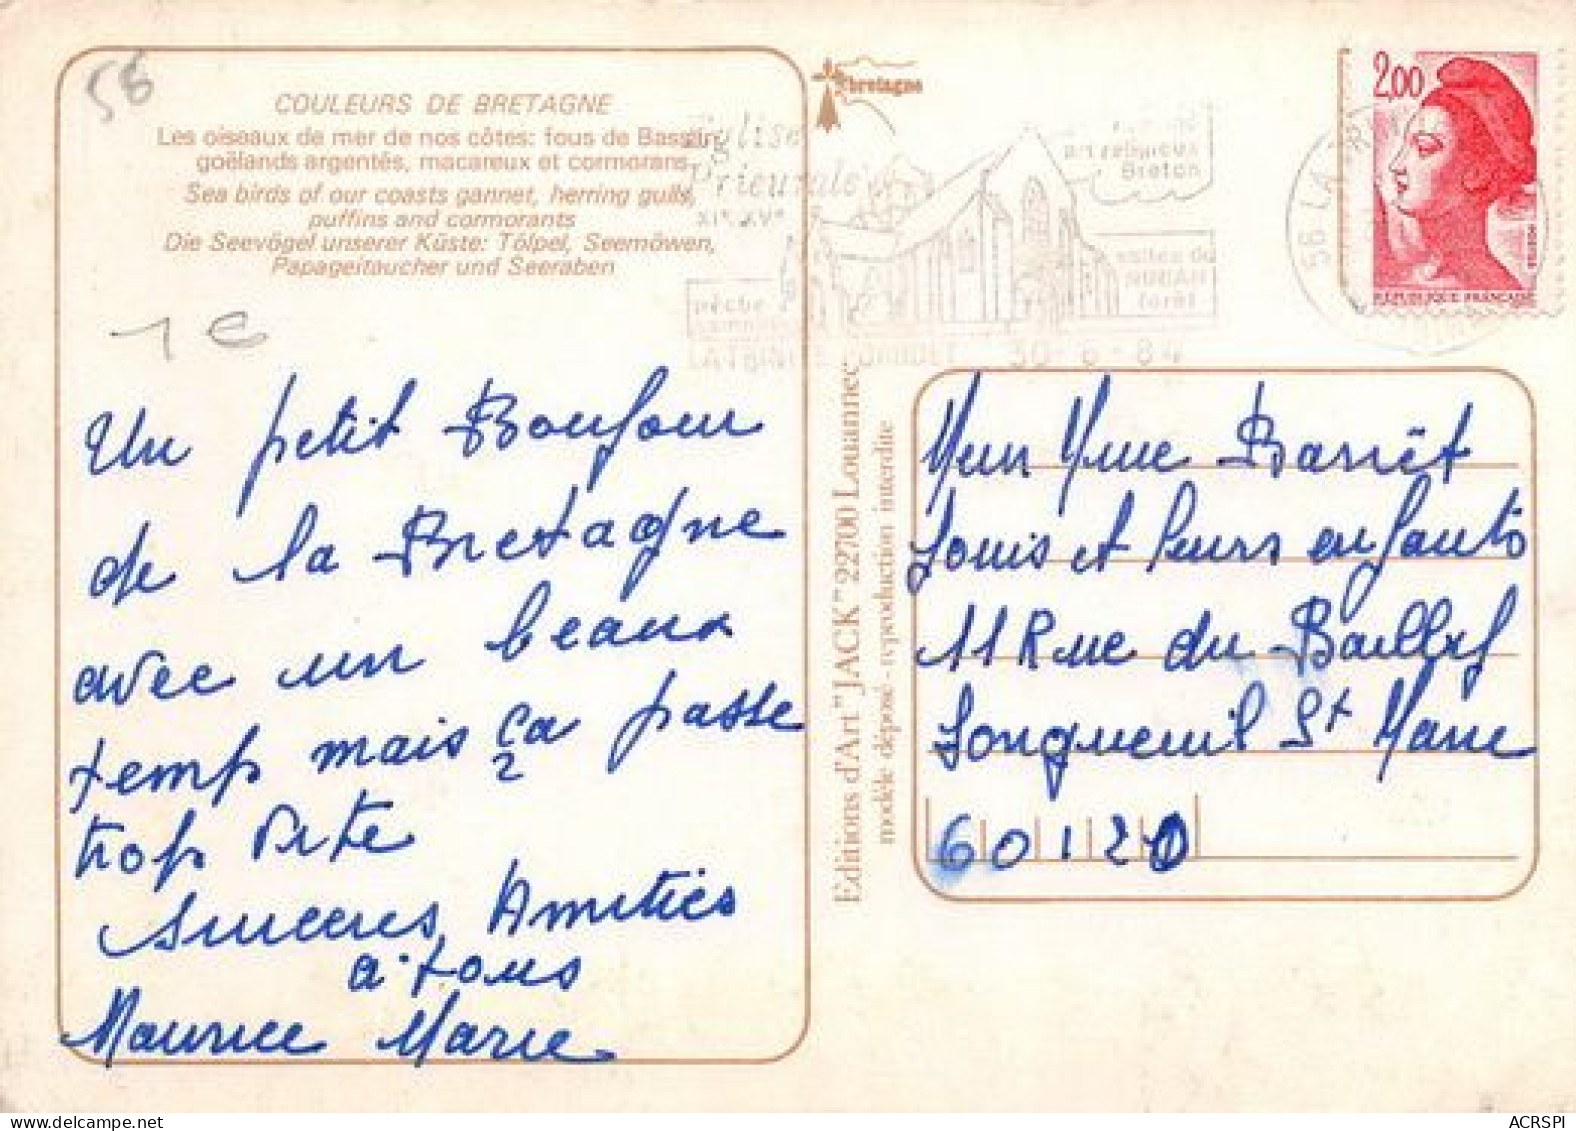 56
COULEURS DE BRETAGNE
Les oiseaux de mer de nos côtes: fous de Bassan,
goëlands argentés, macareux et cormorans.
Sea birds of our coasts gannet, herring gulls,
puffins and cormorants
Die Seevögel unserer Küste: Tölpel, Seemöwen,
Papageitaucher und Seeraben
1 €
Un petit Bonjour
de la Bretagne
avec un beaux
temps mais ça passe
trop vite
Sinceres Amitiés
a tous
Maurice Marie
bretagne
Eglise
Prieurale
XIe XVe
art religieux
Breton
vallée du
forêt
pêche
LA TRINITE PORHOET 30-6-84
56 LA
2,00
POSTES
REPUBLIQUE FRANÇAISE
Editions d'Art "JACK" 22700 Louannec
modèle déposé - reproduction interdite
Mme
Louis et leurs enfants
11 Rue du Bailly
Longueuil St Marie
60120
ACRSPI